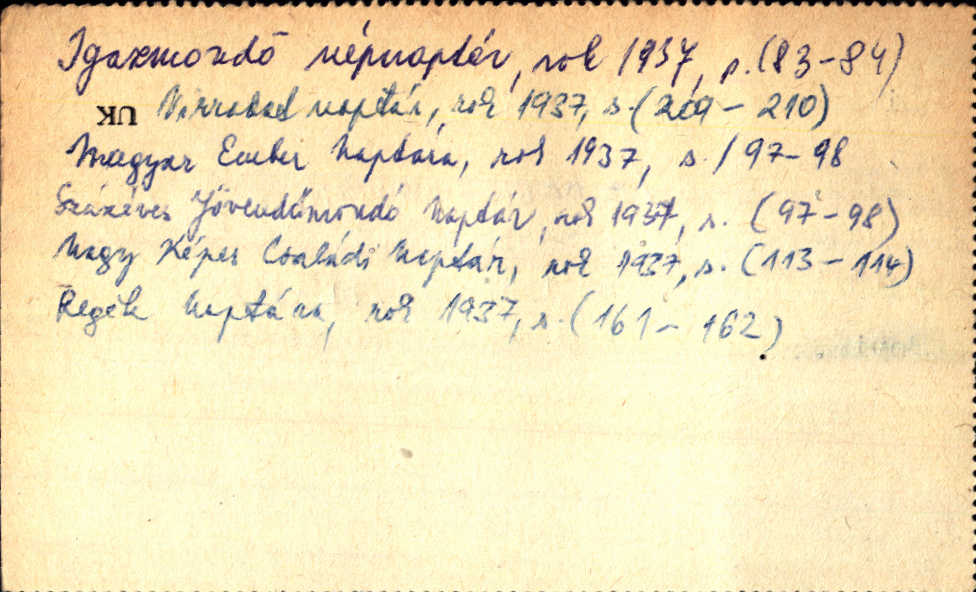 Igazmondó népnaptár, rok 1937, p. (83-84)
UK Virradat naptár, rok 1937, s. (209 - 210)
Magyar Ember Naptára, rok 1937, s. / 97-98
Százéves Jövendőmondó Naptár, rok 1937, s. (97-98)
Nagy Képes Családi Naptár, rok 1937, s. (113-114)
Regék Naptára, rok 1937, s. (161 - 162)